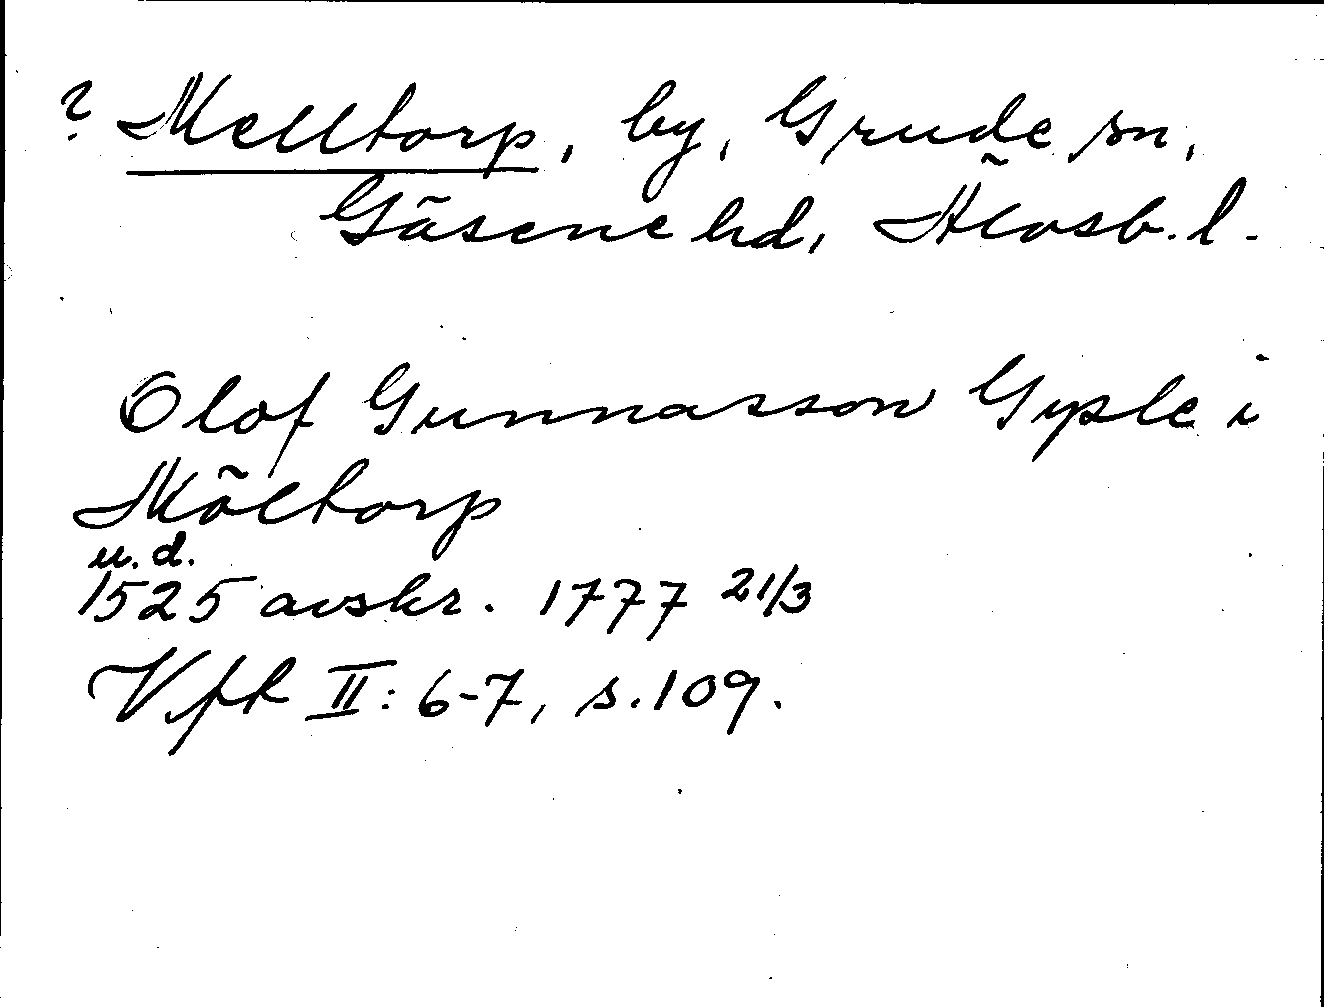 ? Melltorp, by, Grude sn,
Gäsene hd, Älvsb. l.
Olof Gunnasson Gysle i
Möltorp
u.d.
1525 avskr. 1777 21/3
Vfk II: 6-7, s. 109.